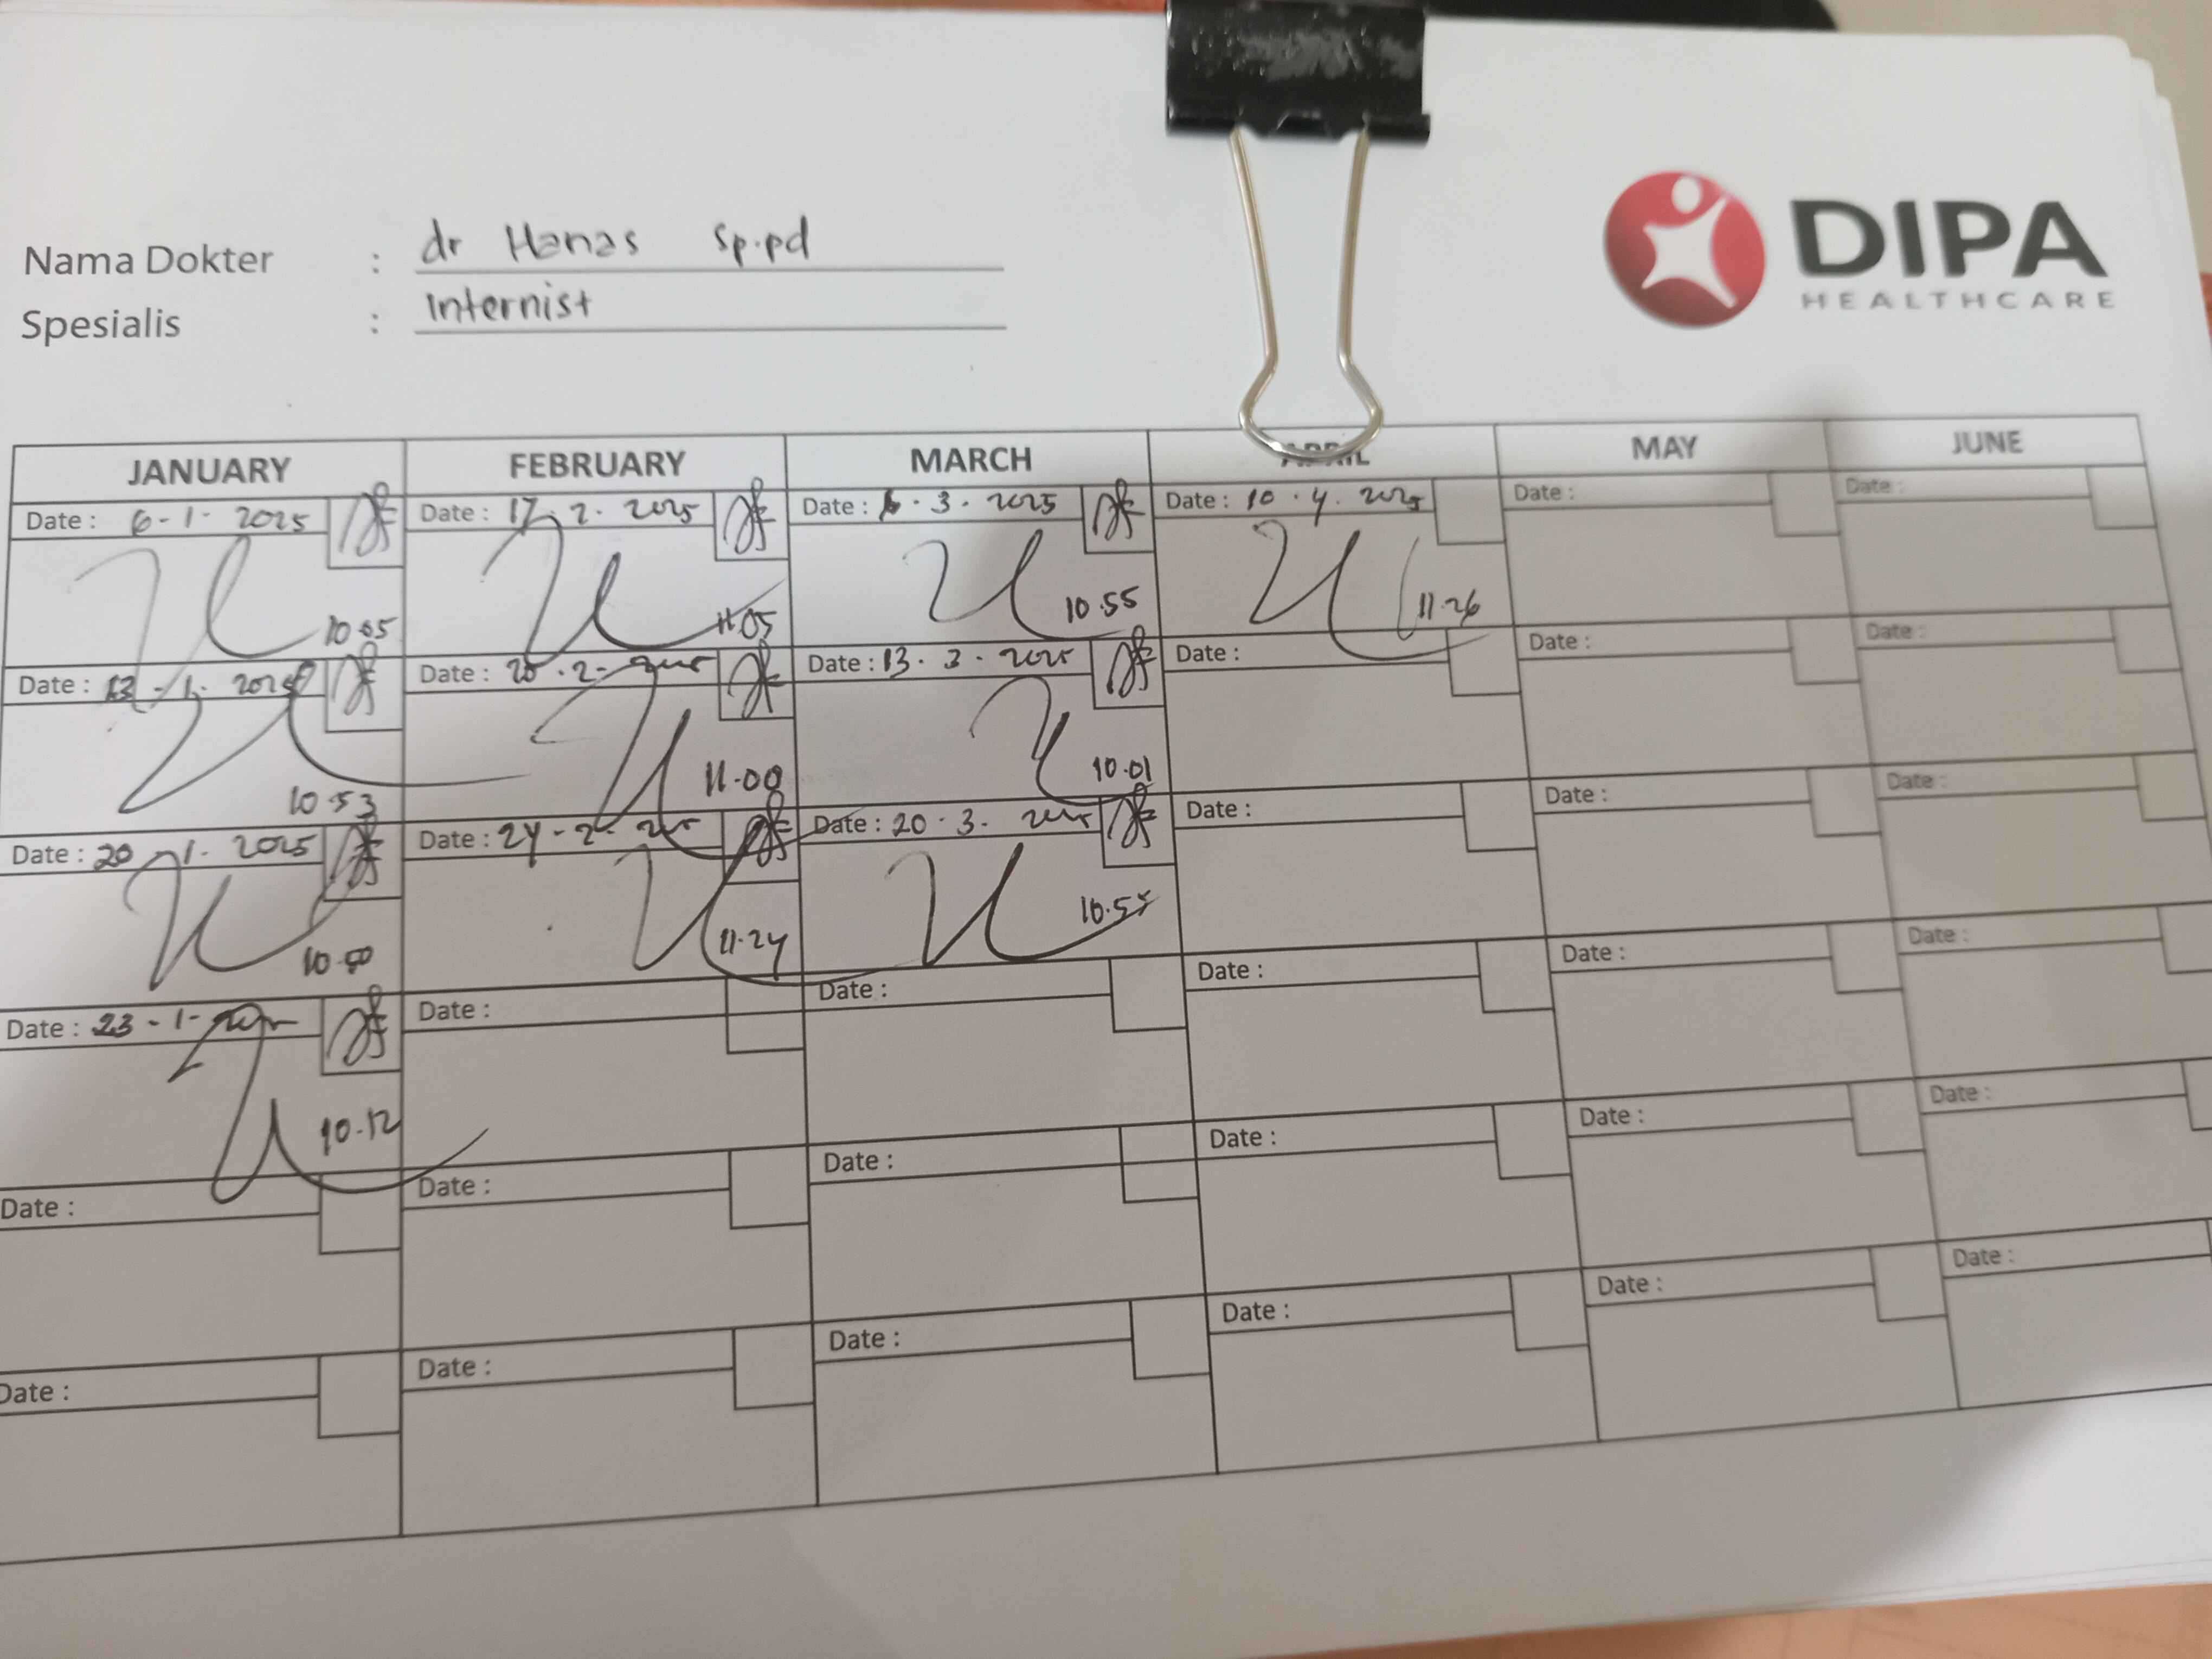 Nama Dokter : dr Hanas Sp.pd
Spesialis : Internist
DIPA
HEALTHCARE
JANUARY FEBRUARY MARCH APRIL MAY JUNE
Date : 6-1-2025 Date : 17.2.2025 Date : 6.3.2025 Date : 10.4.2025 Date : Date :
10.05 11.05 10.55 11.26
Date : 13-1-2025 Date : 20.2-2025 Date : 13.3.2025 Date : Date : Date :
10.53 11.00 10.01
Date : 20-1-2025 Date : 24-2-2025 Date : 20.3.2025 Date : Date : Date :
11.24
Date : 23-1-2025 Date : Date : Date : Date : Date :
10.12
Date : Date : Date : Date : Date : Date :
Date : Date : Date : Date : Date : Date :